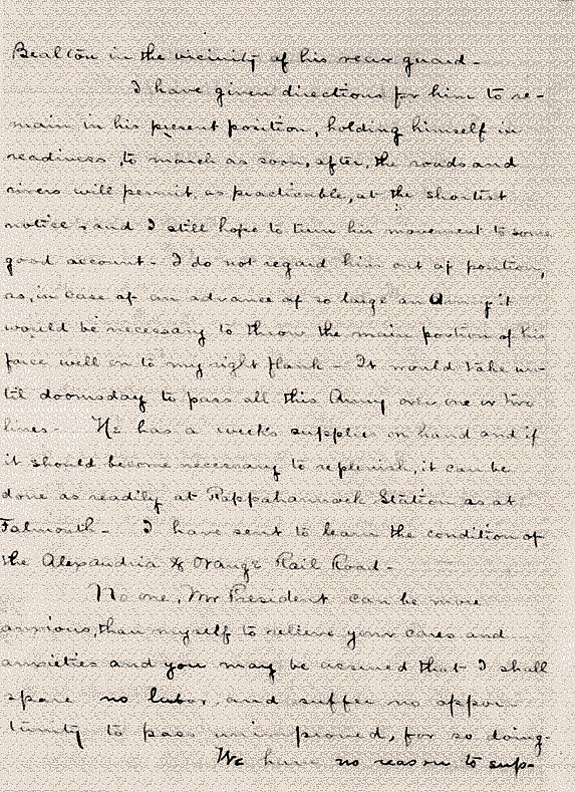 Bealton in the vicinity of his rear guard -
I have given directions for him to re-
main in his present position, holding himself in
readiness, to march as soon, after, the roads and
rivers will permit, as practicable, at the shortest
notice, and I still hope to turn his movement to some
good account - I do not regard him out of position,
as, in case of an advance of so large an Army it
would be necessary to throw the main portion of his
force well on to my right flank - It would take un-
til doomsday to pass all this Army over one or two
lines - He has a week's supplies on hand and if
it should become necessary to replenish, it can be
done as readily at Rappahannock Station as at
Falmouth - I have sent to learn the condition of
the Alexandria & Orange Rail Road -
No one, Mr President can be more
anxious, than myself to relieve your cares and
anxieties and you may be assured that I shall
spare no labor, and suffer no oppor
tunity to pass unimproved, for so doing.
We have no reason to sup-